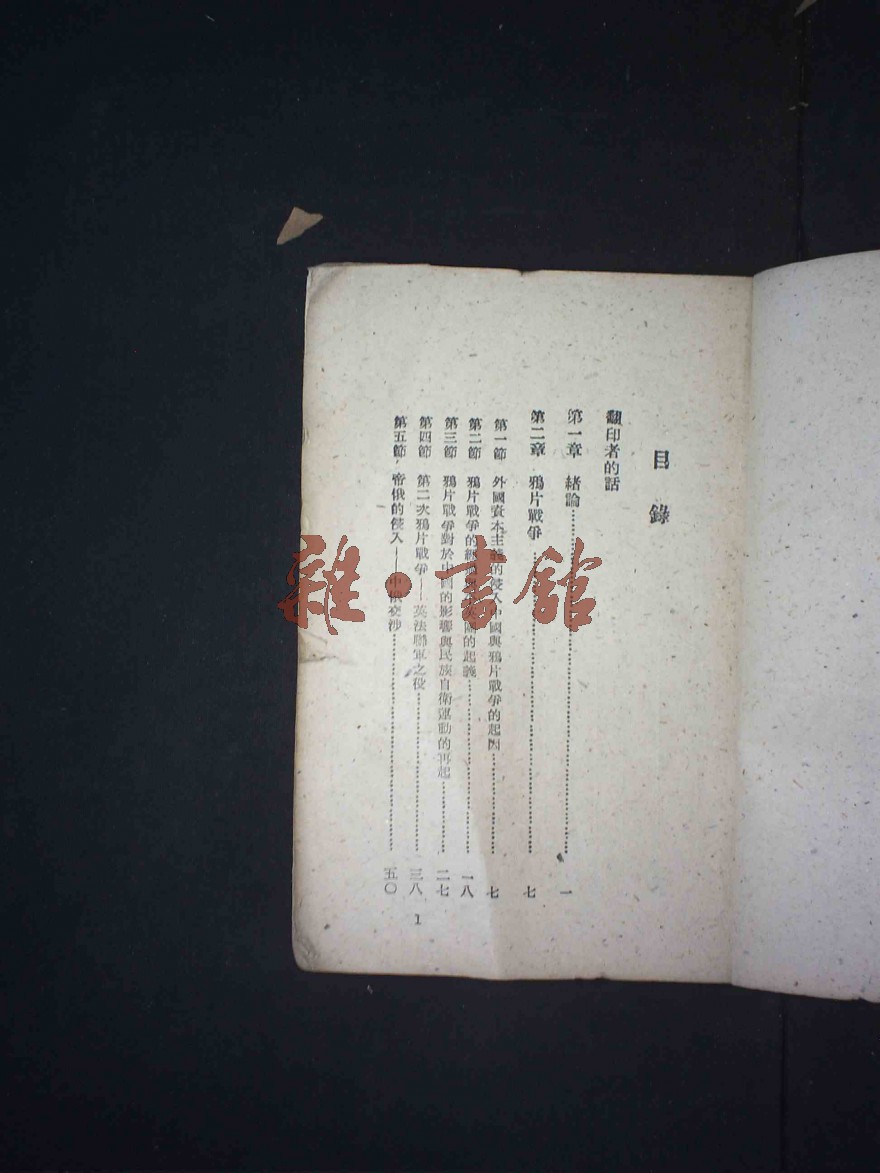 目錄
翻印者的話
第一章 緒論……一
第二章 鴉片戰爭……七
第一節 外國資本主義的侵入中國與鴉片戰爭的起因……七
第二節 鴉片戰爭的經過與的起義……一八
第三節 鴉片戰爭對於中國的影響與民族自衛運動的再起……二七
第四節 第二次鴉片戰爭——英法聯軍之役……三八
第五節 帝俄的侵入——中俄交涉……五〇
1
雜·書館